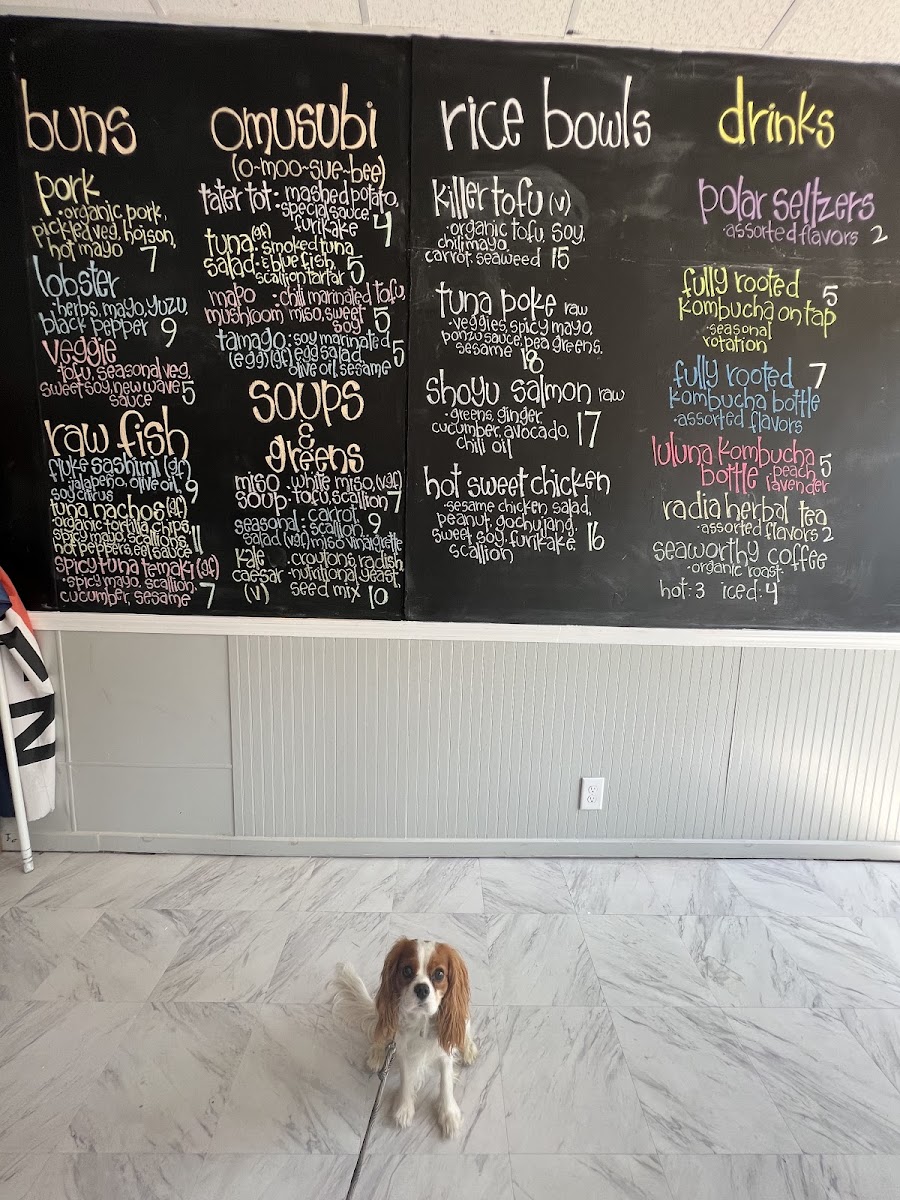 buns
pork
·organic pork,
pickled veg, hoison,
hot mayo 7
lobster
·herbs, mayo, yuzu,
black pepper 9
veggie
·tofu, seasonal veg,
sweet soy, new wave 5
sauce
raw fish
fluke sashimi (gf)
·jalapeño, olive oil, 9
soy citrus
tuna nachos (gf)
·organic tortilla chips,
spicy mayo, scallions, 11
hot peppers, eel sauce
spicy tuna temaki (gf)
·spicy mayo, scallion,
cucumber, sesame 7
omusubi
(o~moo~sue~bee)
tater tot: mashed potato,
special sauce, 4
furikake
tuna (gf)
salad: smoked tuna
& blue fish, 5
scallion tartar
mapo : chili marinated tofu,
mushroom miso, sweet 5
soy
tamago: soy marinated
(egg)(gf) egg salad, 5
olive oil, sesame
soups
&
greens
miso ·white miso, (v.gf)
soup ·tofu, scallion 7
seasonal: carrot,
scallion, 9
salad (v.gf) miso vinaigrette
kale ·croutons, radish,
caesar ·nutritional yeast,
(v) seed mix 10
rice bowls
killer tofu (v)
·organic tofu, soy,
chili mayo,
carrot, seaweed 15
tuna poke raw
·veggies, spicy mayo,
ponzu sauce, pea greens,
sesame 18
shoyu salmon raw
·greens, ginger,
cucumber, avocado, 17
chili oil
hot sweet chicken
·sesame chicken salad,
peanut, gochujang,
sweet soy, furikake, 16
scallion
drinks
polar seltzers
·assorted flavors 2
fully rooted 5
kombucha on tap
·seasonal
rotation
fully rooted 7
kombucha bottle
·assorted flavors
luluna kombucha 5
bottle ·peach
lavender
radia herbal tea
·assorted flavors 2
seaworthy coffee
·organic roast·
hot: 3 iced: 4
N